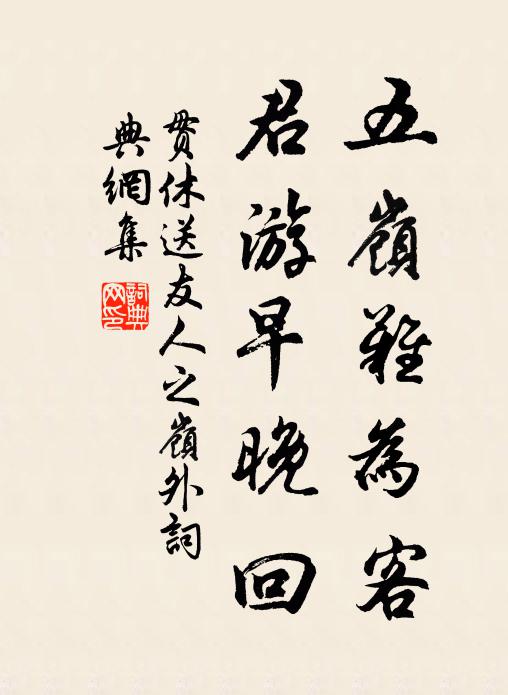 五嶺難為客
君游早晚回
貫休送友人之嶺外詞
典網集
詞典
网印